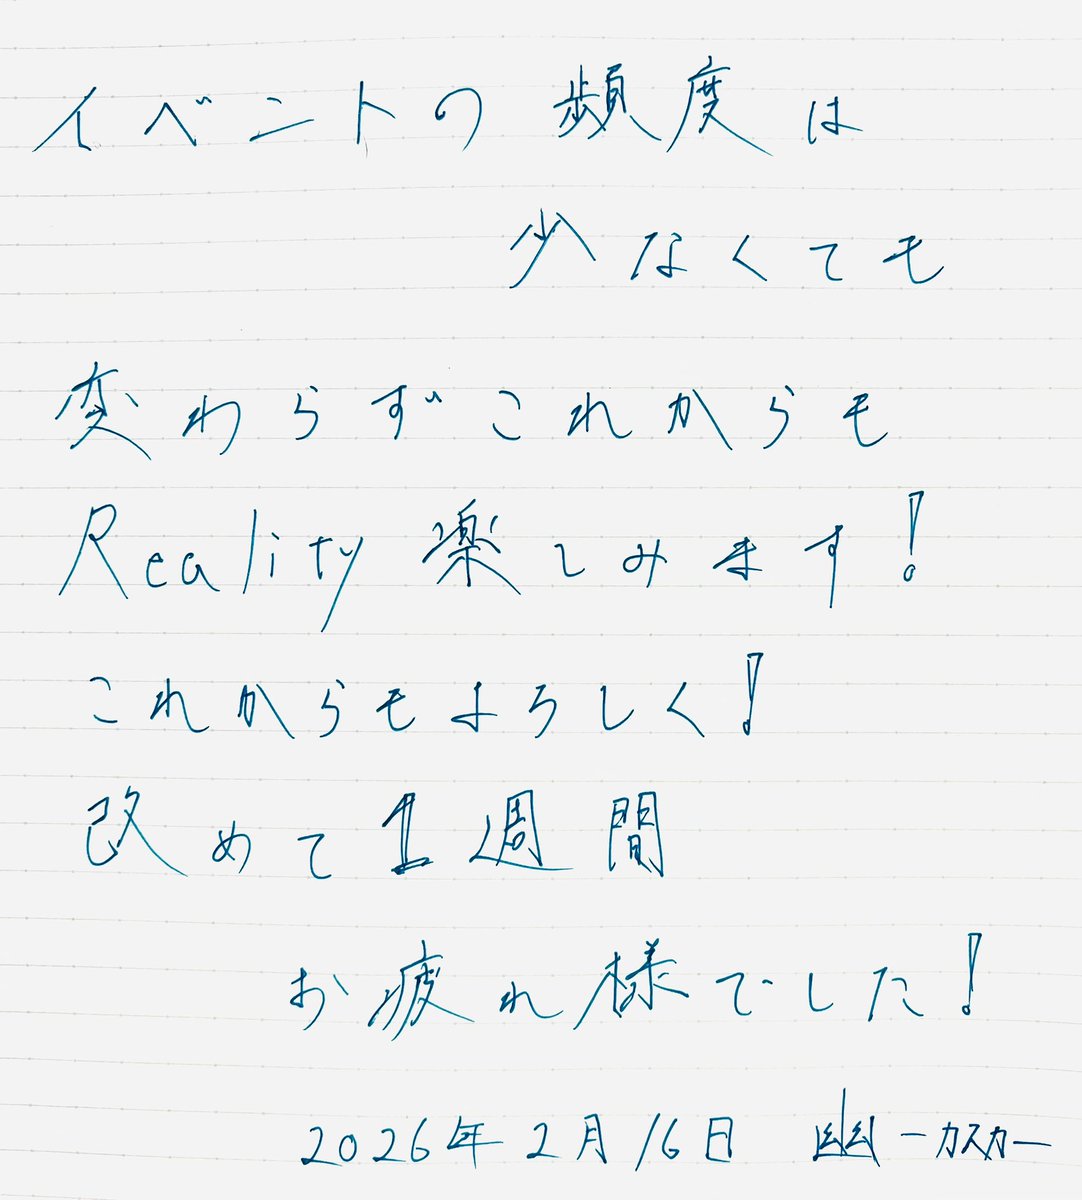 イベントの頻度は
少なくても
変わらずこれからも
Reality楽しみます!
これからもよろしく!
改めて1週間
お疲れ様でした!
2026年2月16日 幽ーカスカー